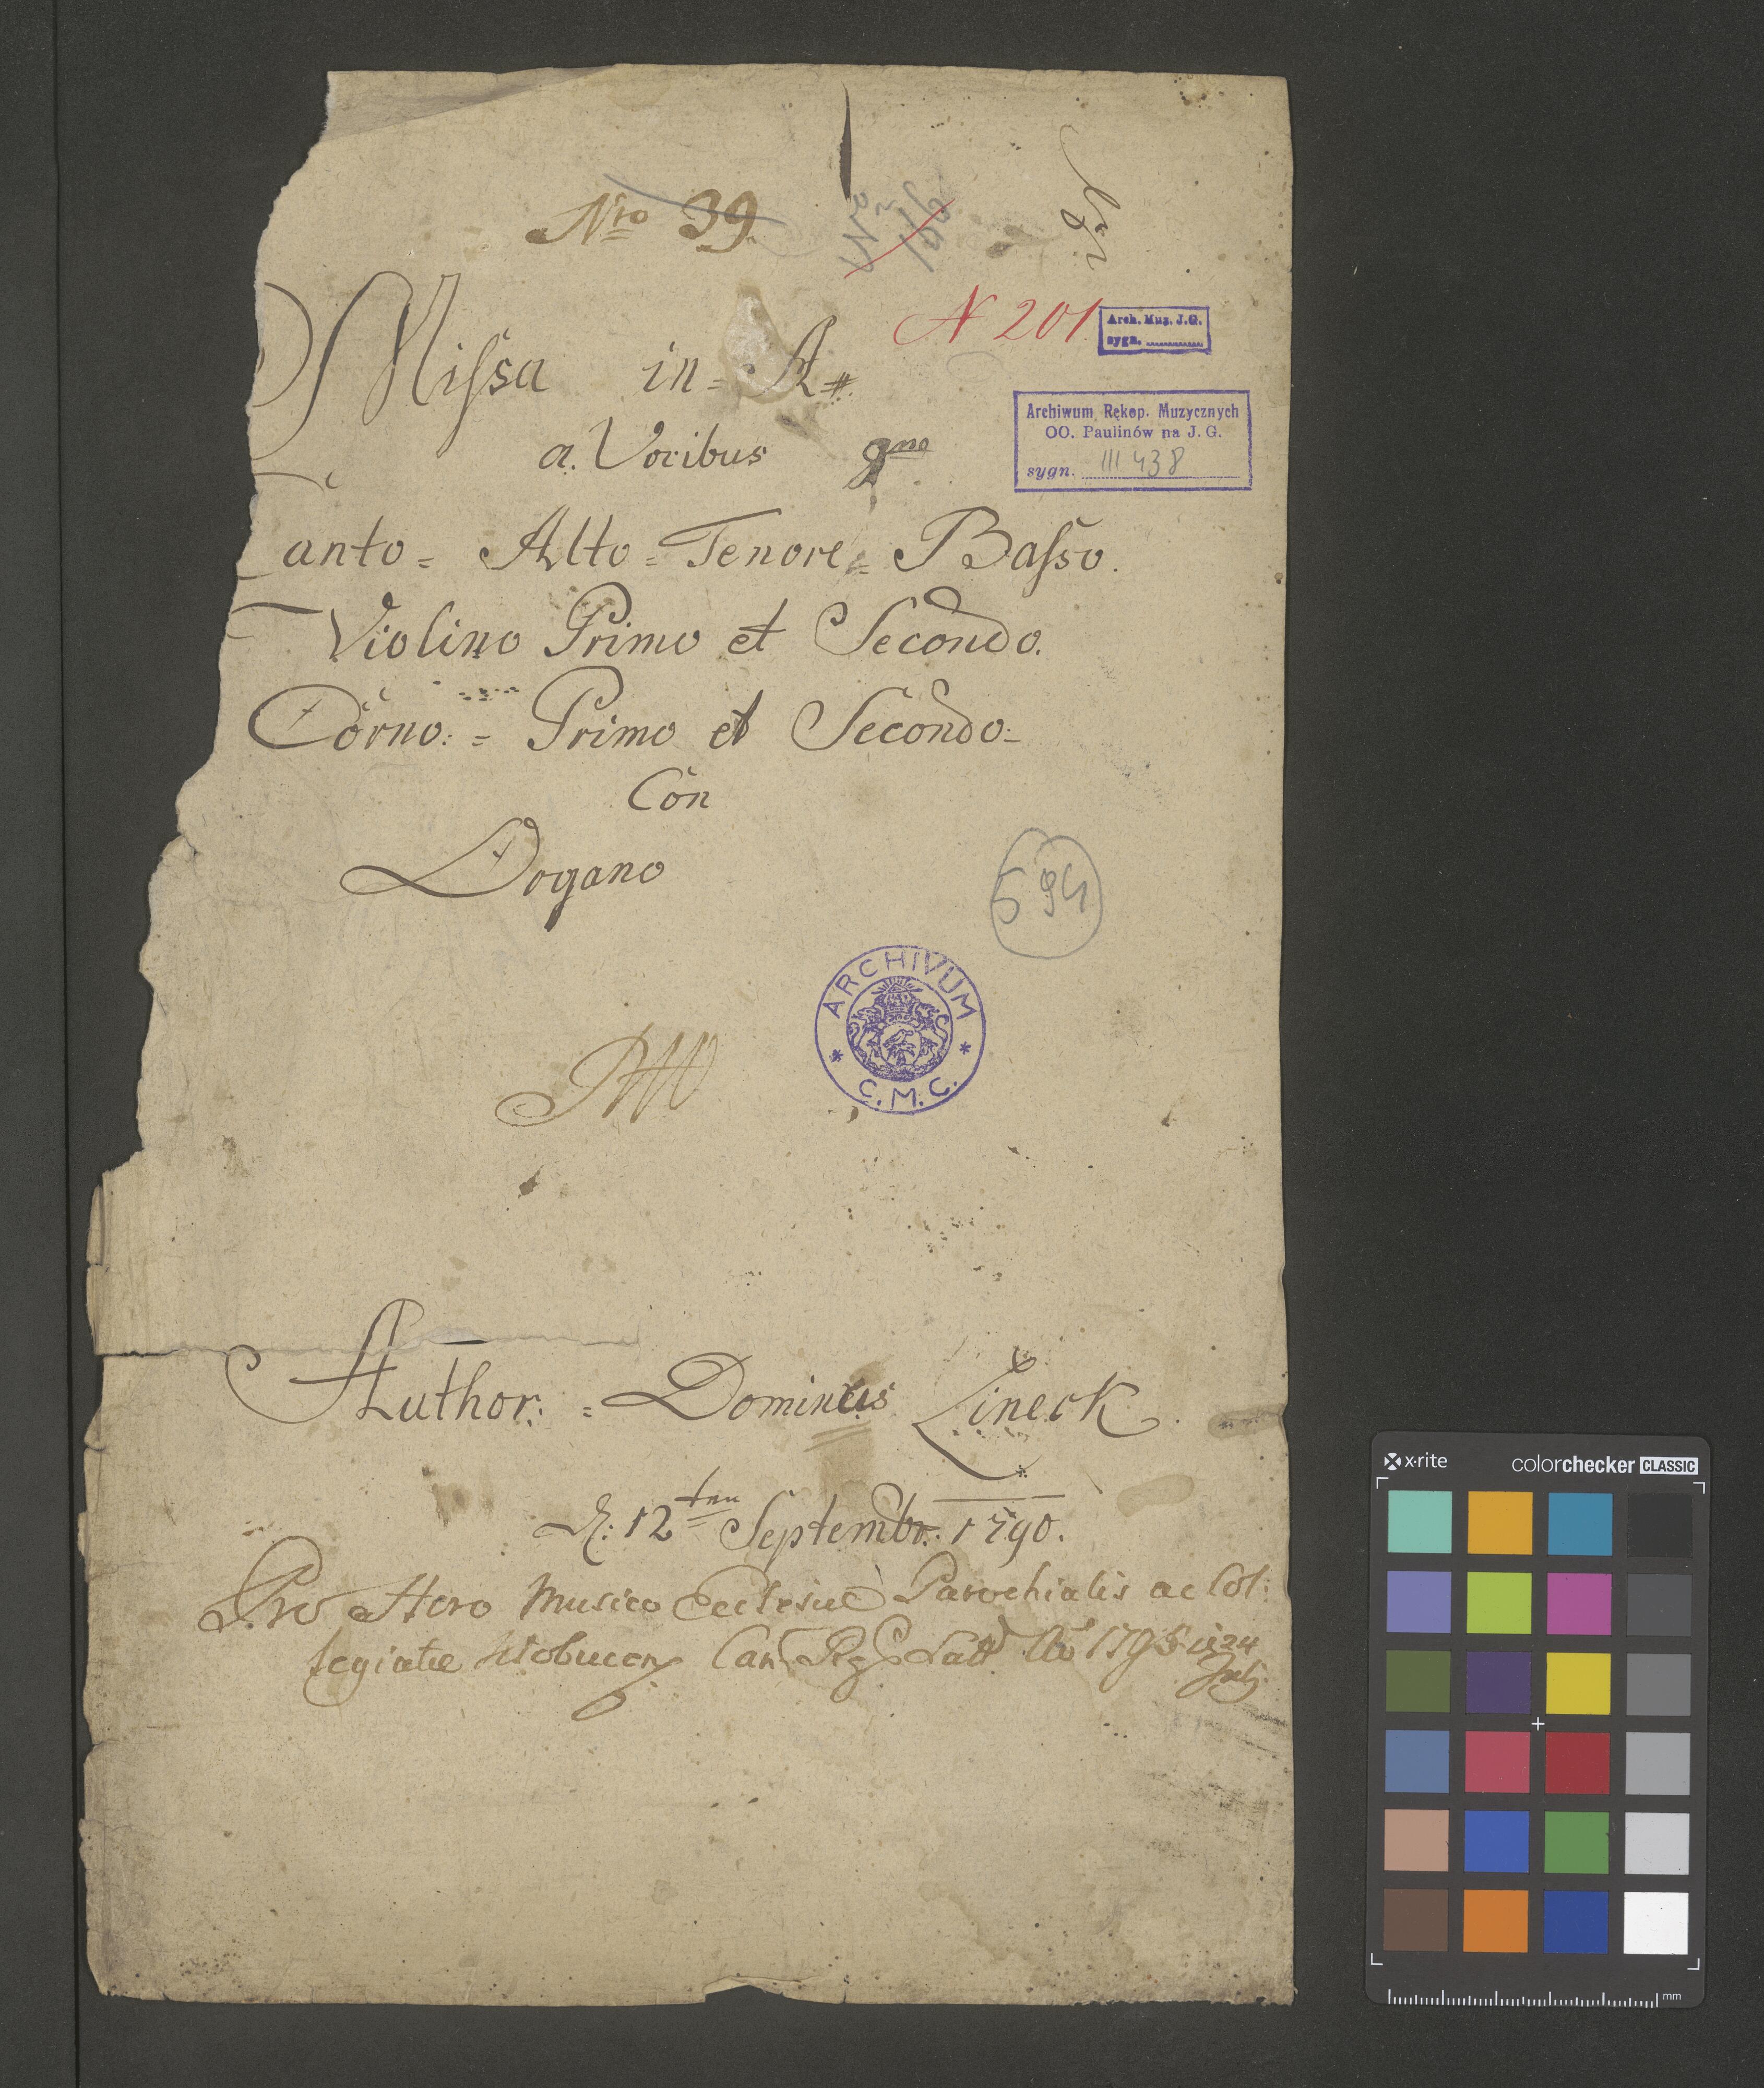 Nro 39.
N 201
Arch. Muz. J.G.
sygn.
Missa in = A#.
Archiwum Rękop. Muzycznych
OO. Paulinów na J. G.
sygn. III 438
a. Vocibus 9no
Canto = Alto = Tenore = Basso.
Violino Primo et Secondo.
Corno: = Primo et Secondo:
Con
Organo
594
ARCHIVUM
* C. M. C. *
Author: = Dominus Lineck.
D: 12ten Septembr: 1790.
Pro Horo Musico Ecclesiae Parochialis ac Col:
legiatae Can Reg Latt Ao 1795 24
July
x-rite
colorchecker CLASSIC
mm